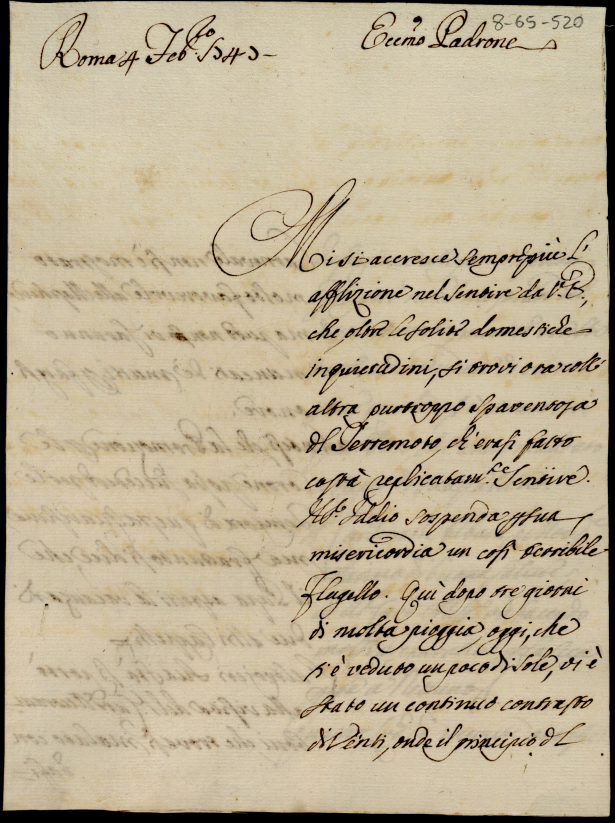 8-65-520
Roma 4 Feb.ro 1747
Eccmo Padrone
Mi si accresce sempre più l'
afflizione nel sentire da V.E.,
che oltre le solite domestiche
inquietudini, si trovi ora coll'
altra purtroppo spaventosa
del Terremoto, ch'erasi fatto
costà replicatam.te sentire.
Iddio sospenda p sua
misericordia un così terribile
Flagello. Quì dopo tre giorni
di molta pioggia, oggi, che
si è veduto un poco di sole, vi è
stato un continuo contrasto
di Venti, onde il principio del